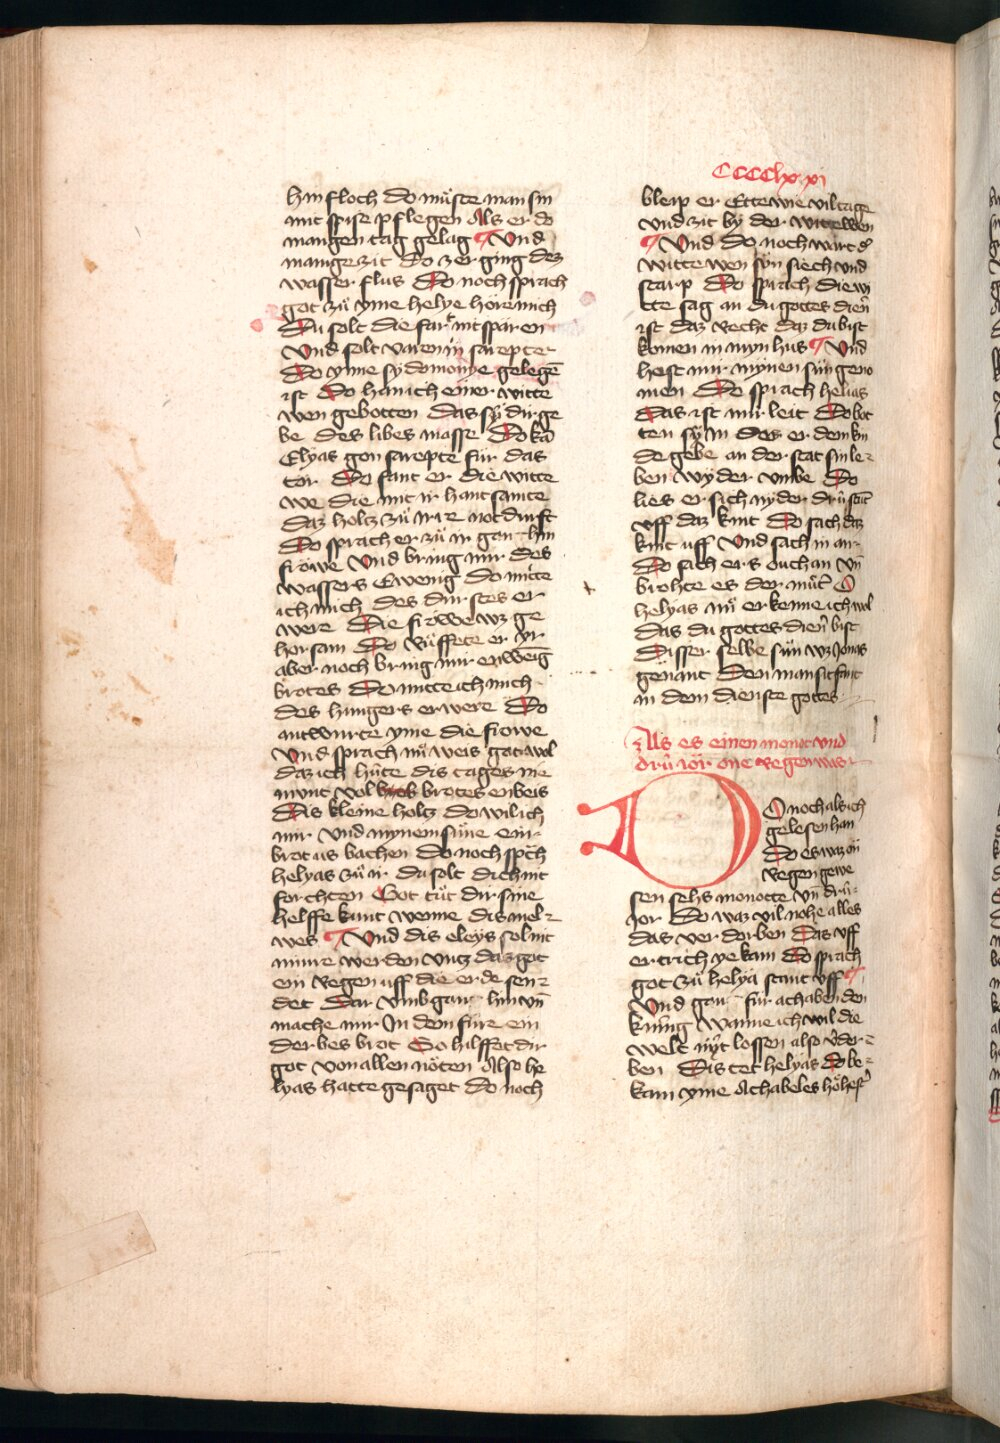 CCCClxxi
hin floch do müste man sin
mit spise pflegen Als er do
mangen tag gelag ¶ Und
mange zit Do zer ging dez
wasser flus Do noch sprach
got zü yme helye höre mich
Du solt die fart nit sparen
Und solt varen in sarepte
Do yme sydomonye gelegē
ist Do han ich einer witte
wen gebotten das sy dir ge
be des libes masse Do kā
Elyas gon sarepte für das
tor Do fant er die witte
we die mit ir hant samte
daz holtz zü irre notdurft
Do sprach er zü ir gan hin
fröwe Und bring mir des
wassers Ewenig do mitte
ich mich des durstes er
were Die fröwe wz ge
horsam Do rüffete er yr
aber noch bring mir enweig
brotes Do mitte ich mich
des hungers erwere Do
antwurte yme die frowe
Und sprach nü weis got wol
daz ich hüte dis tages nie
munt vol brotes enbeis
Dis kleine holtz do wil ich
mir Und mynem süne ein
brot us bachen Do noch spch
helyas zü ir du solt dich nit
forchten Got tüt dir sine
helffe kunt wenne dis mel-
wes ¶ Und dis eleys sol nit
minre werden untz daz got
ein regen uff die erde sen-
det Dar umb gant hin vn̄
mache mir In dem füre ein
derbes brot So hilffet dir
got von allen nöten Also he
lyas hatte gesaget Do noch
bleip er Ettewie vil tage
Und zit by der wittewen
¶ Und do noch wart d
wittewen sün siech und
starp Do sprach die wi
tte sag an du gottes dien
ist daz recht daz du bist
komen in myn hus ¶ Und
hest mir mynen sün geno
men Do sprach helias
Das ist mir leit Do bot
ten sy In des er dem kin
de gebe an der stat sin le-
ben wyder umbe Do
lies er sich nyder drü stūt
uff daz kint Do sach daz
kint uff Und sach in an
Do sach ers ouch an vn̄
brohte es der müt O
helyas nü erkenne ich wol
das du gottes dien bist
Disser selbe sün wz Jonas
genant Den man sit fint
in dem dienste gotes
Als es einen monot und
drü ior one regen was
Do noch als ich
gelesen han
Do es waz on
regen gewe
sen sehs monotte vn̄ drü-
Jor Do waz vil nohe alles
das verdorben Das uff
ertrich ye kam Do sprach
got zü helya stant uff ¶
Und gon für achab den
küning Wanne ich wil die
welt nyt lossen also vder-
ben Dis tet helyas do be-
kam yme Achabeles höhest